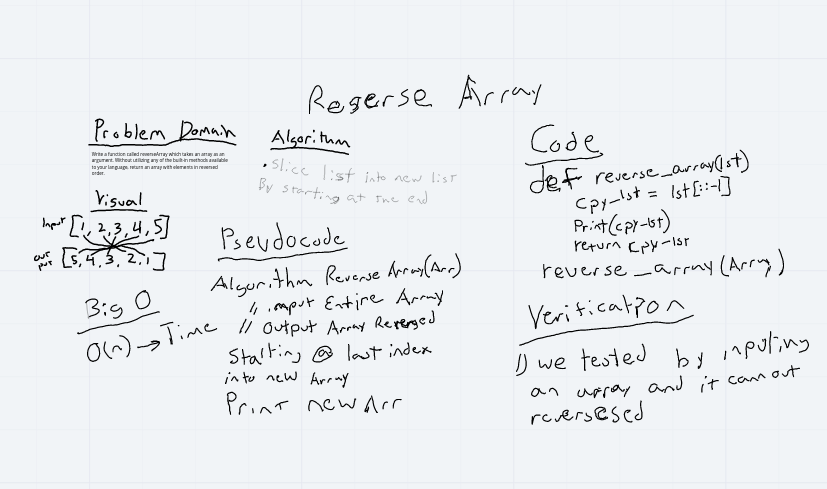 Reserse Array
Problem Domain
Write a function called reverseArray which takes an array as an
argument. Without utilizing any of the built-in methods available
to your language, return an array with elements in reversed
order.
Visual
Input [1, 2, 3, 4, 5]
out put [5, 4, 3, 2, 1]
Big O
O(n) → Time
Algorithm
• Slice list into new list
By starting at the end
Pseudocode
Algorithm Reverse Array(Arr)
// input Entire Array
// Output Array Reversed
Starting @ last index
into new Array
Print new Arr
Code
def reverse_array(lst)
cpy-lst = lst[::-1]
Print(cpy-lst)
return cpy-lst
reverse_array(Array)
Verification
1) we tested by inputing
an array and it cam out
reversesed